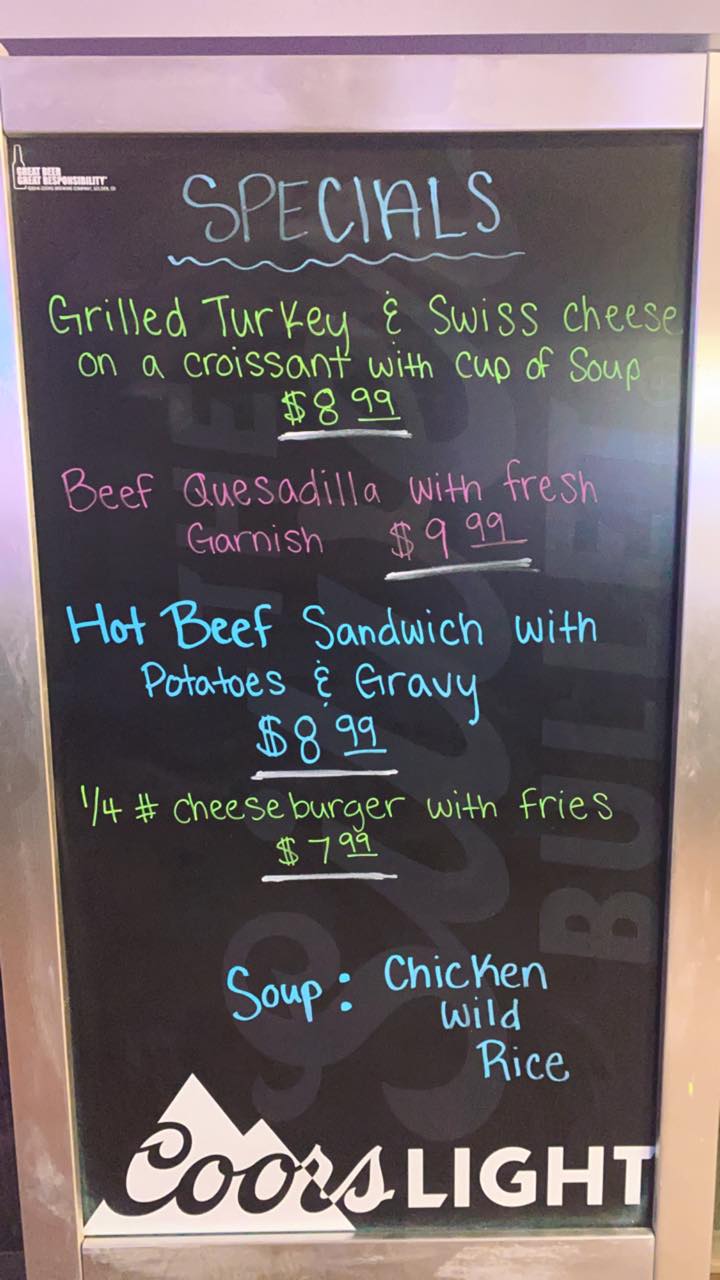 GREAT BEER
GREAT RESPONSIBILITY
SPECIALS
Grilled Turkey & Swiss cheese
on a croissant with cup of Soup
$8 99
Beef Quesadilla with fresh
Garnish $9 99
Hot Beef Sandwich with
Potatoes & Gravy
$8 99
1/4 # cheeseburger with fries
$7 99
Soup: Chicken
Wild
Rice
Coors LIGHT